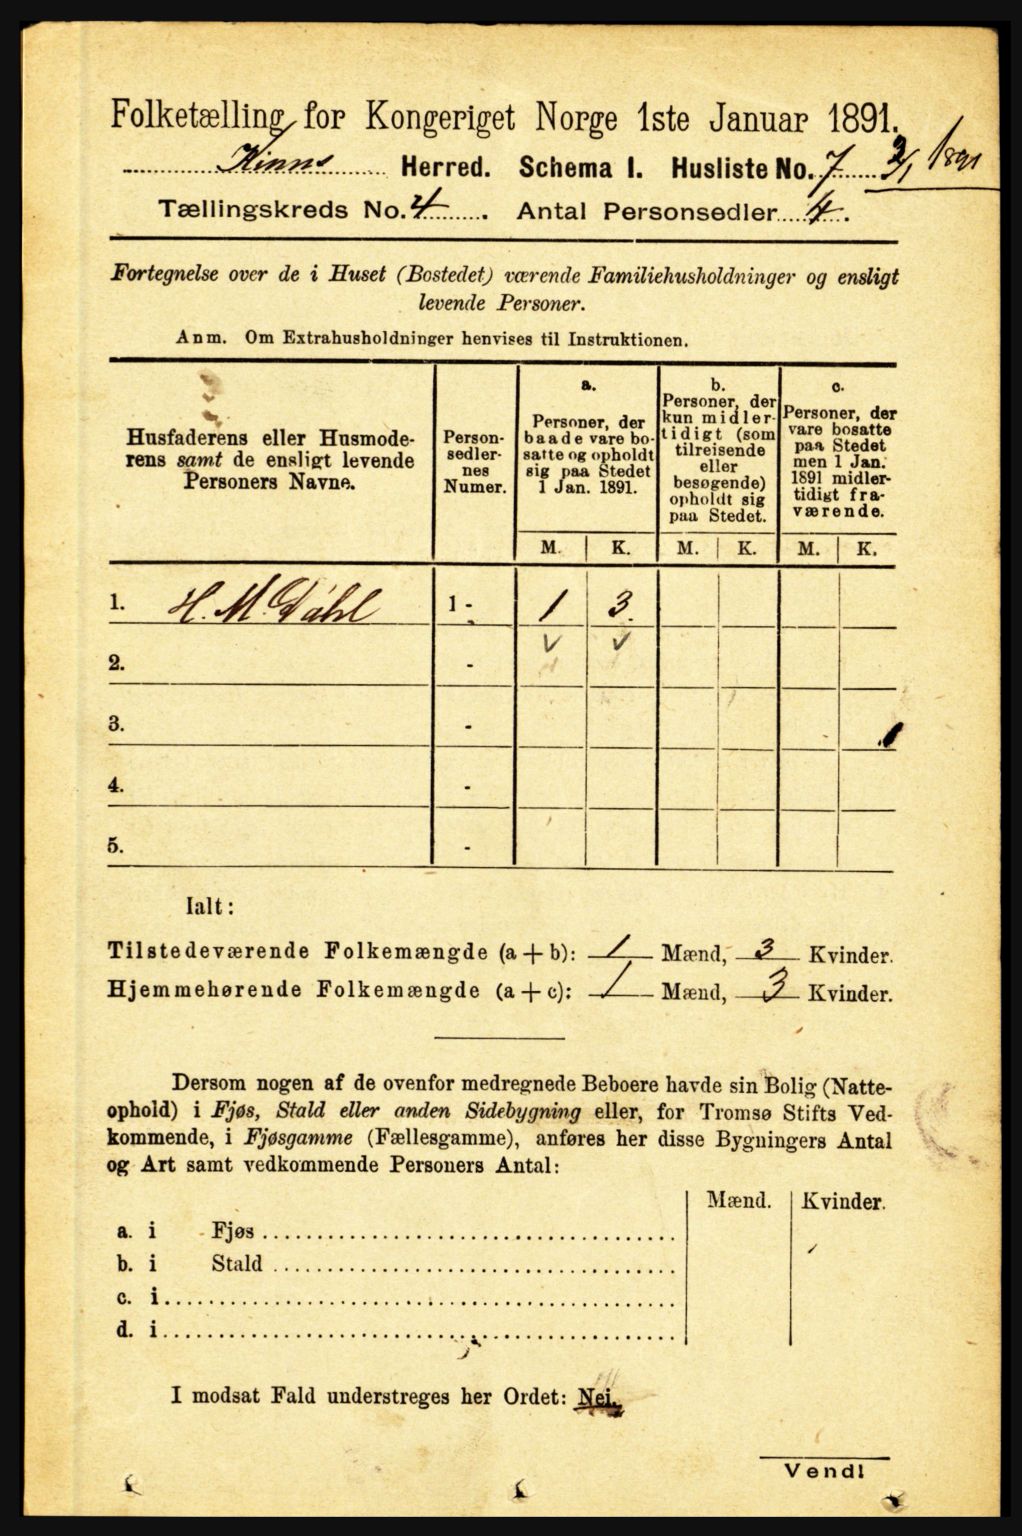 Folketælling for Kongeriget Norge 1ste Januar 1891.
Kinns Herred. Schema I. Husliste No. 7 2/1 1891
Tællingskreds No. 4. Antal Personsedler 4.
Fortegnelse over de i Huset (Bostedet) værende Familiehusholdninger og ensligt
levende Personer.
Anm. Om Extrahusholdninger henvises til Instruktionen.
Husfaderens eller Husmode-
rens samt de ensligt levende
Personers Navne.
Person-
sedler-
nes
Numer.
a.
Personer, der
baade vare bo-
satte og opholdt
sig paa Stedet
1 Jan. 1891.
b.
Personer, der
kun midler-
tidigt (som
tilreisende
eller
besøgende)
opholdt sig
paa Stedet.
c.
Personer, der
vare bosatte
paa Stedet
men 1 Jan.
1891 midler-
tidigt fra-
værende.
M. K. M. K. M. K.
1. H. M. Dahl 1 - 1 3.
2. - v v
3. -
4. -
5. -
Ialt:
Tilstedeværende Folkemængde (a + b): 1 Mænd, 3 Kvinder.
Hjemmehørende Folkemængde (a + c): 1 Mænd, 3 Kvinder.
Dersom nogen af de ovenfor medregnede Beboere havde sin Bolig (Natte-
ophold) i Fjøs, Stald eller anden Sidebygning eller, for Tromsø Stifts Ved-
kommende, i Fjøsgamme (Fællesgamme), anføres her disse Bygningers Antal
og Art samt vedkommende Personers Antal:
Mænd. Kvinder.
a. i Fjøs
b. i Stald
c. i
d. i
I modsat Fald understreges her Ordet: Nei.
Vendl